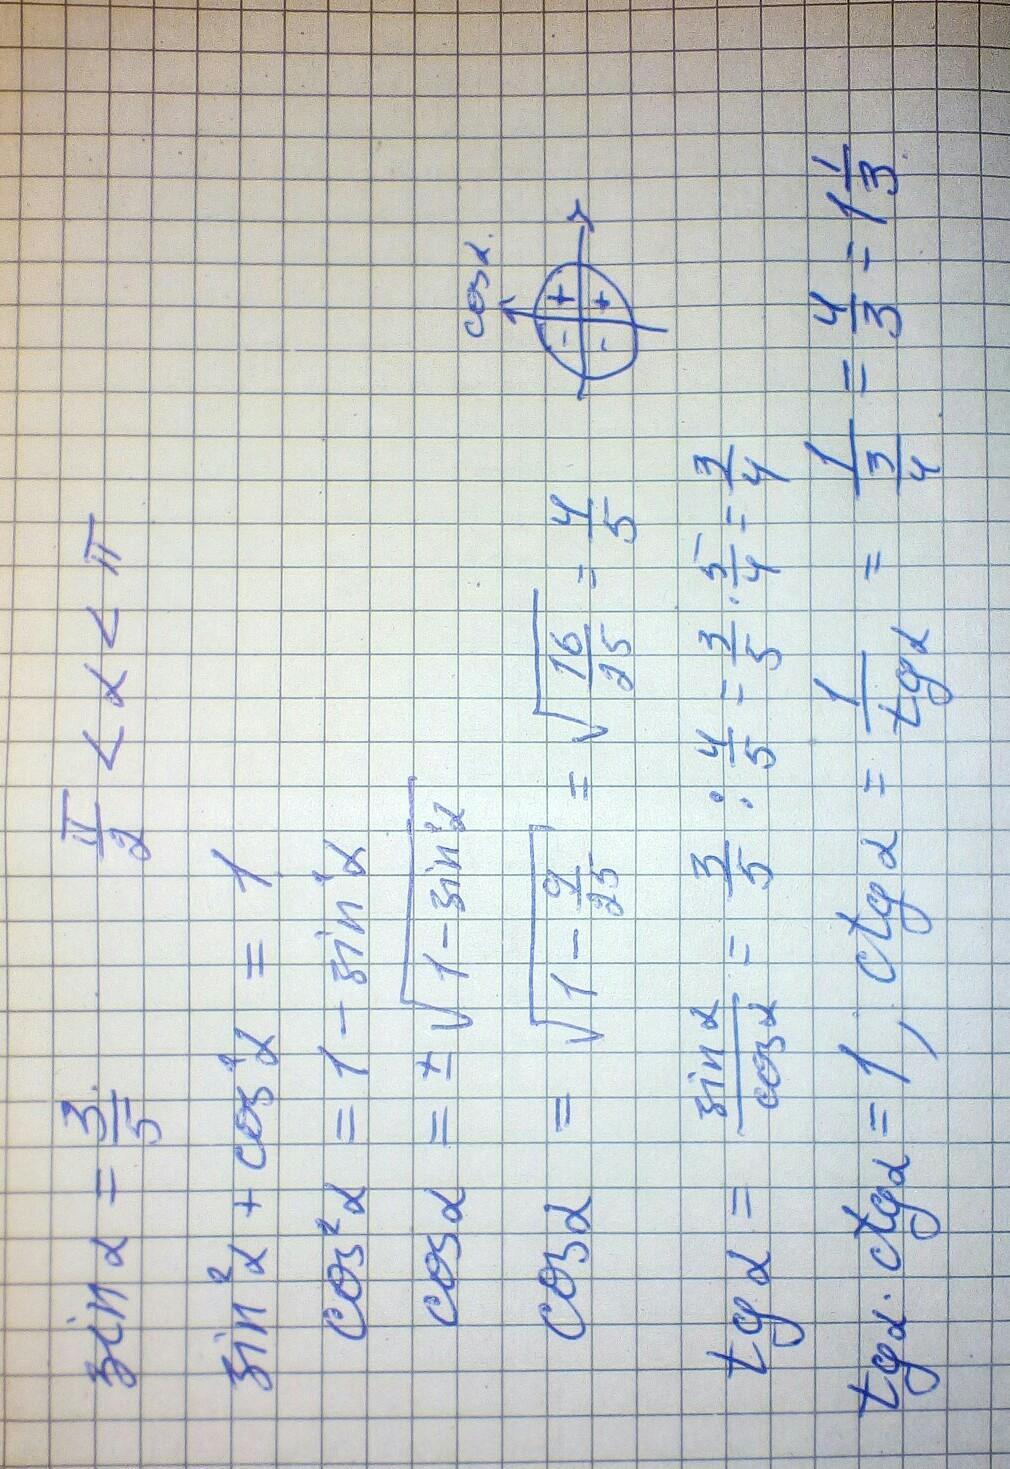 sin α = 3/5   π/2 < α < π
sin²α + cos²α = 1
cos²α = 1 - sin²α
cos α = ± √(1 - sin²α)
cos α.
cos α = √(1 - 9/25) = √(16/25) = 4/5
+ - - +
tg α = sin α / cos α = 3/5 : 4/5 = 3/5 · 5/4 = 3/4
tg α · ctg α = 1, ctg α = 1/tg α = 1/(3/4) = 4/3 = 1 1/3